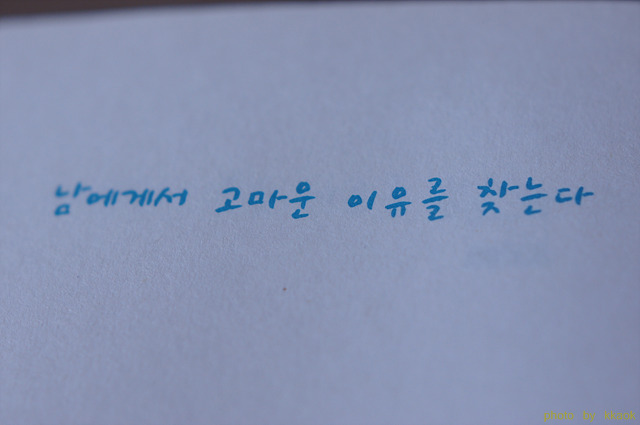 남에게서 고마운 이유를 찾는다
photo by